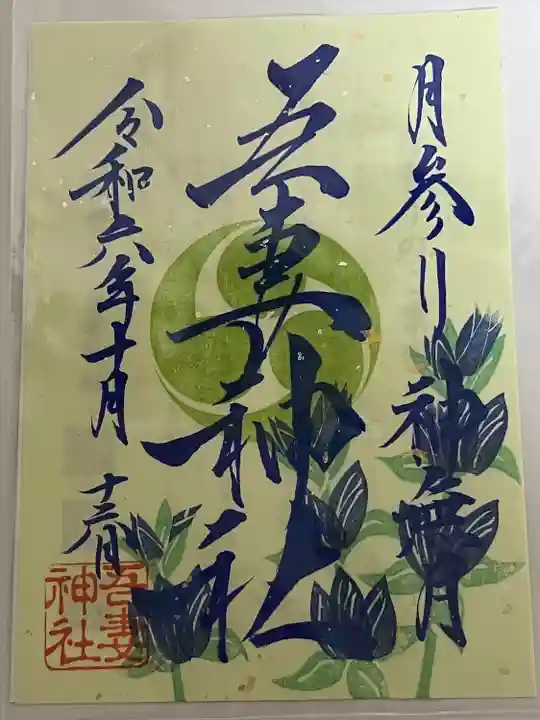 月参り 神無月
吾妻神社
令和六年十月 十三日
吾妻
神社